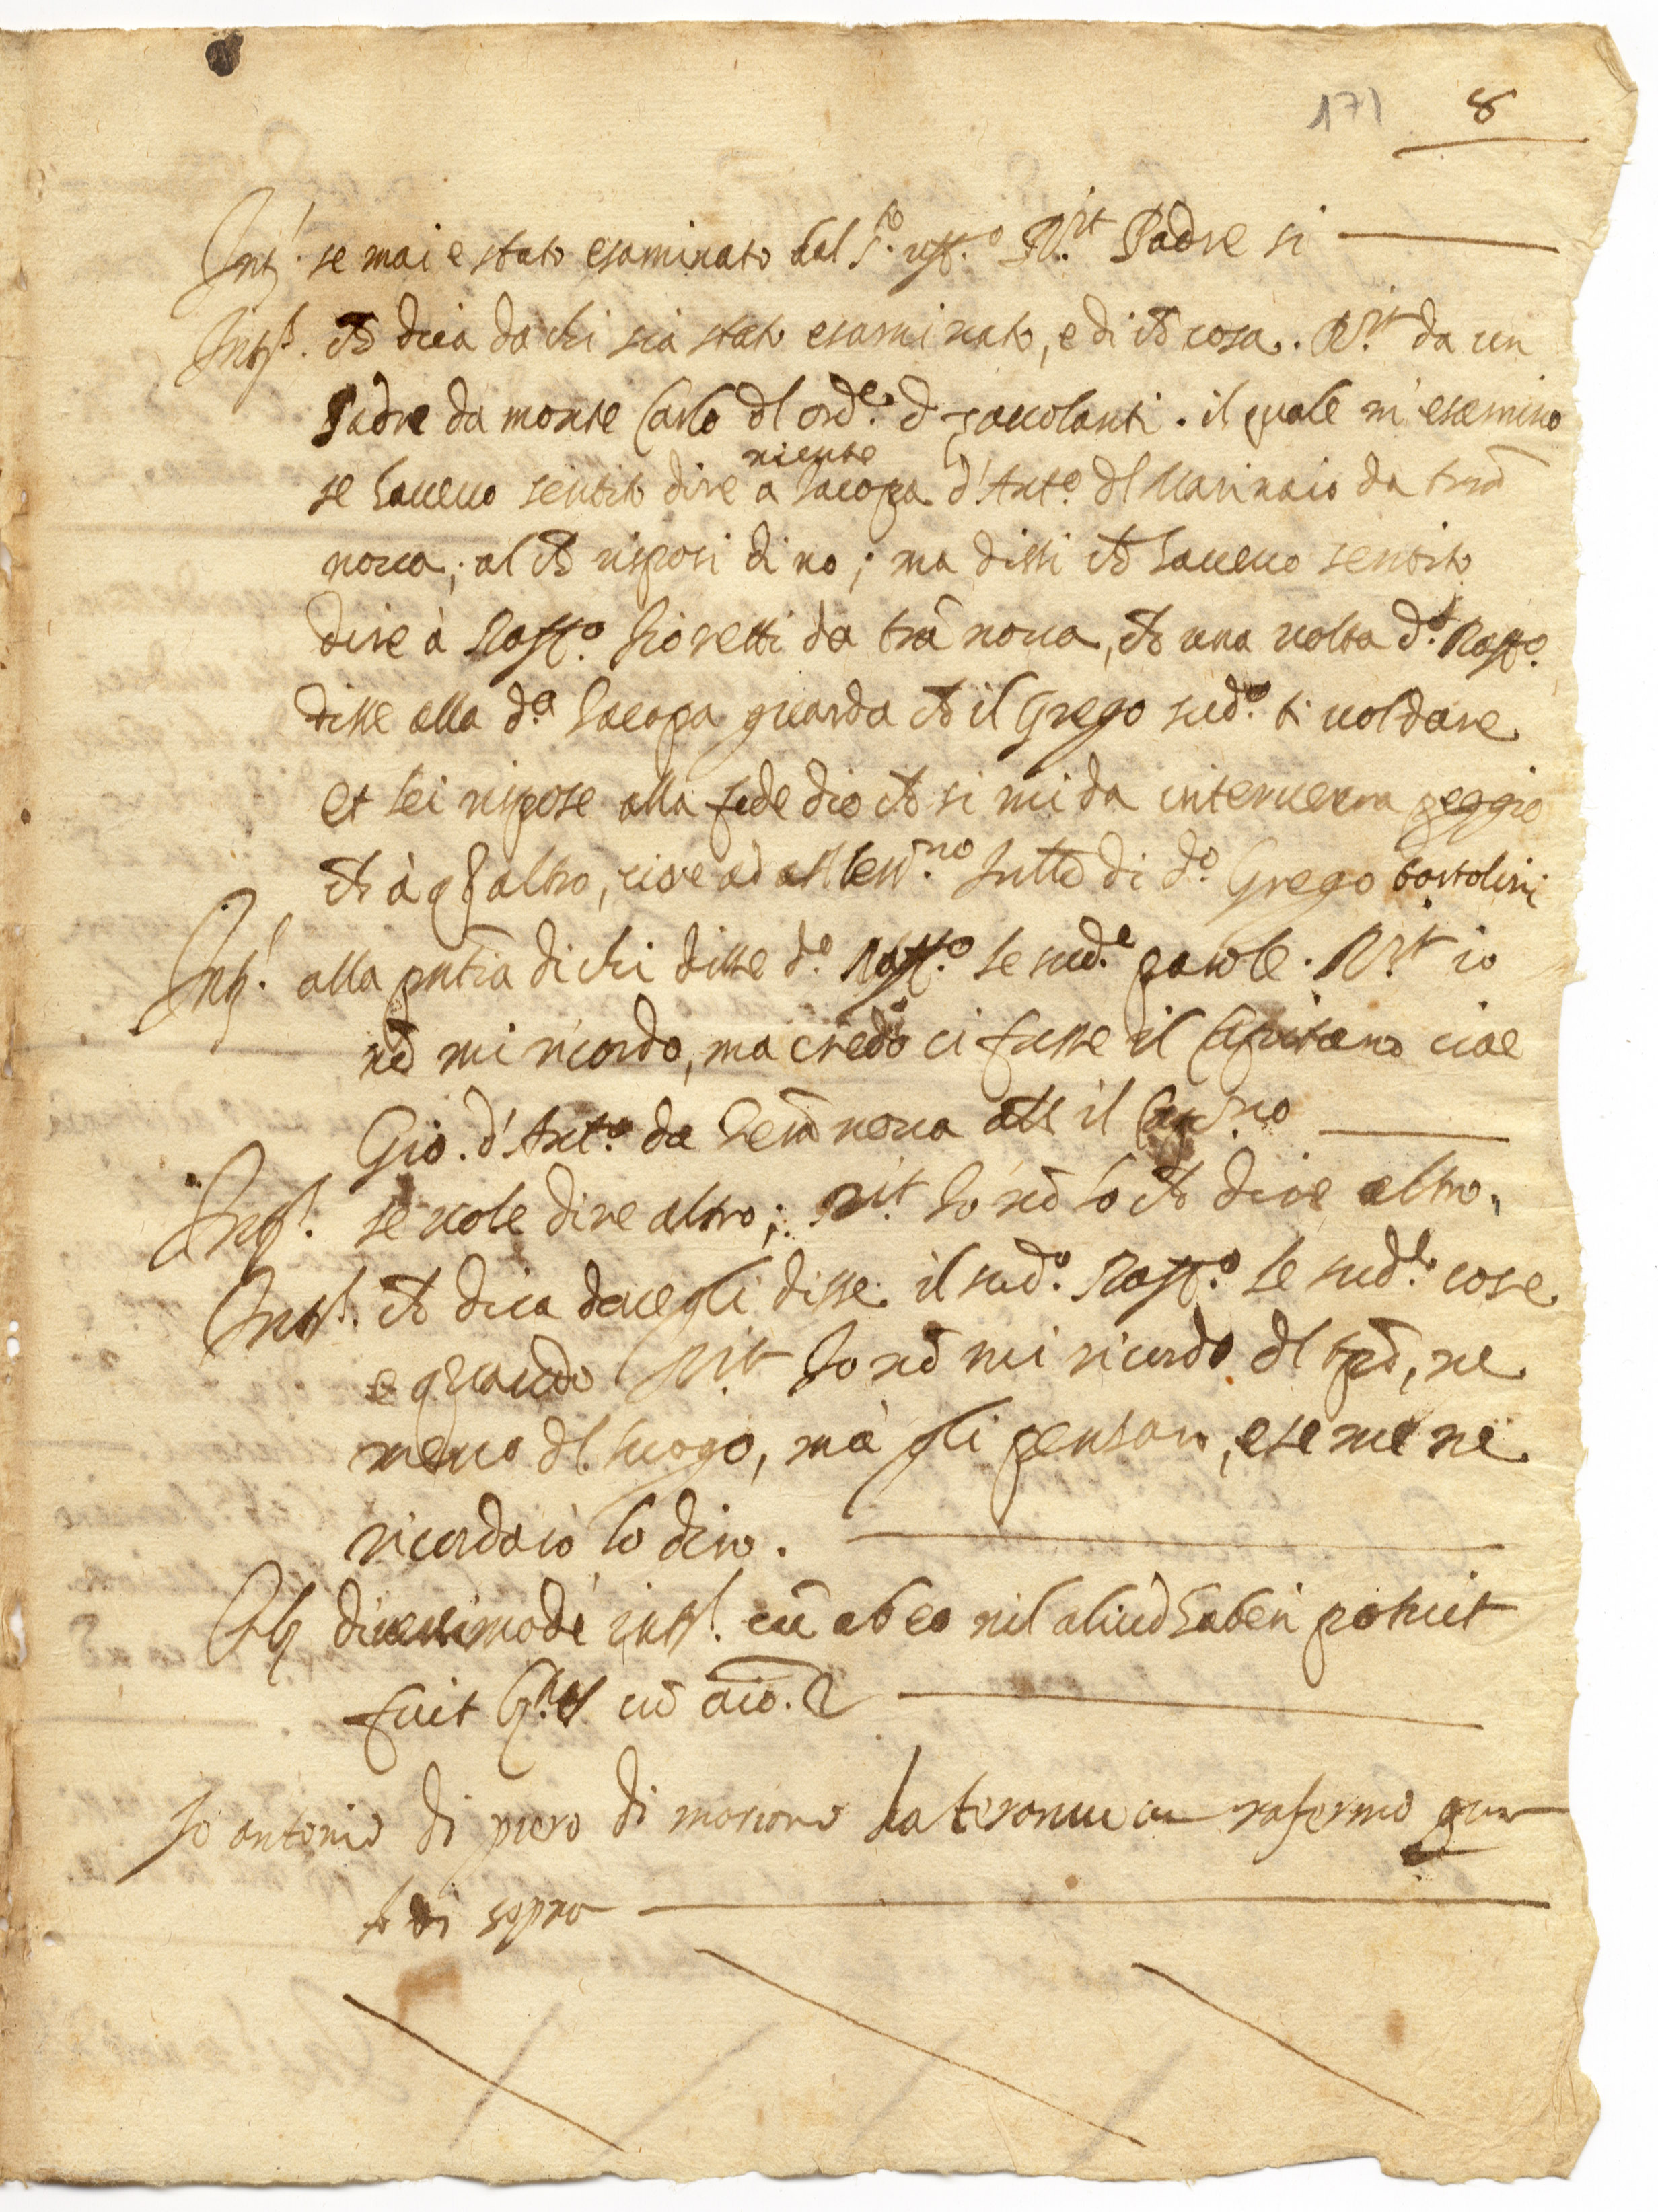 171 8
Int.s se mai e stato esaminato dal S.to uff.o R.it Padre si
Int.s che dica da chi sia stato esaminato, e di che cosa. R.it da un
Padre da monte Carlo dl ord.e d zoccolanti. il quale m'esamino
niente
se haveuo sentito dire a Jacopa d'Ant.o dl Marinaio da
noua, al che risposi di no; ma dissi che haueuo sentito
dire à Raff.o fioretti da noua, che una uolta d.o Raff.o
disse alla d.a Jacopa guarda che il Grego sud.o ti uol dare
et lei rispose alla fede dio che si mi da interuerra peggio
che à altro, cioe ad di d.o Grego bortolini
Int.s alla pntia di chi disse d.o Raff.o le sud.e parole. R.it io
nõ mi ricordo, ma credo ci fusse il Capitano cioe
Gio. d'Ant.o da noua als il
Int.s se uole dire altro; R.it Io nõ so che dire altro.
Int.s che dica doue gli disse il sud.o Raff.o le sud.e cose
e quando R.it Io nõ mi ricordo dl tpõ, ne
meno dl luogo, mà gli pensaro, e se me ne
ricordarò lo diro.
Et diuersimode int.s cũ ab eo nil aliud haberi potuit
fuit cũ
Io antonio di piero di da teranuoua rafermo quan
to di sopra